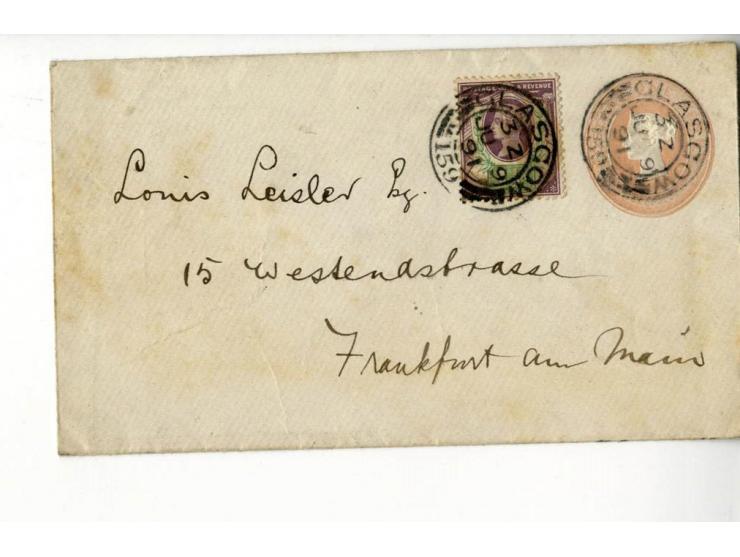 POSTAGE & REVENUE
GLASGOW
159
GLASGOW
159
Louis Leisler Esq.
15 Westendstrasse
Frankfurt am Main